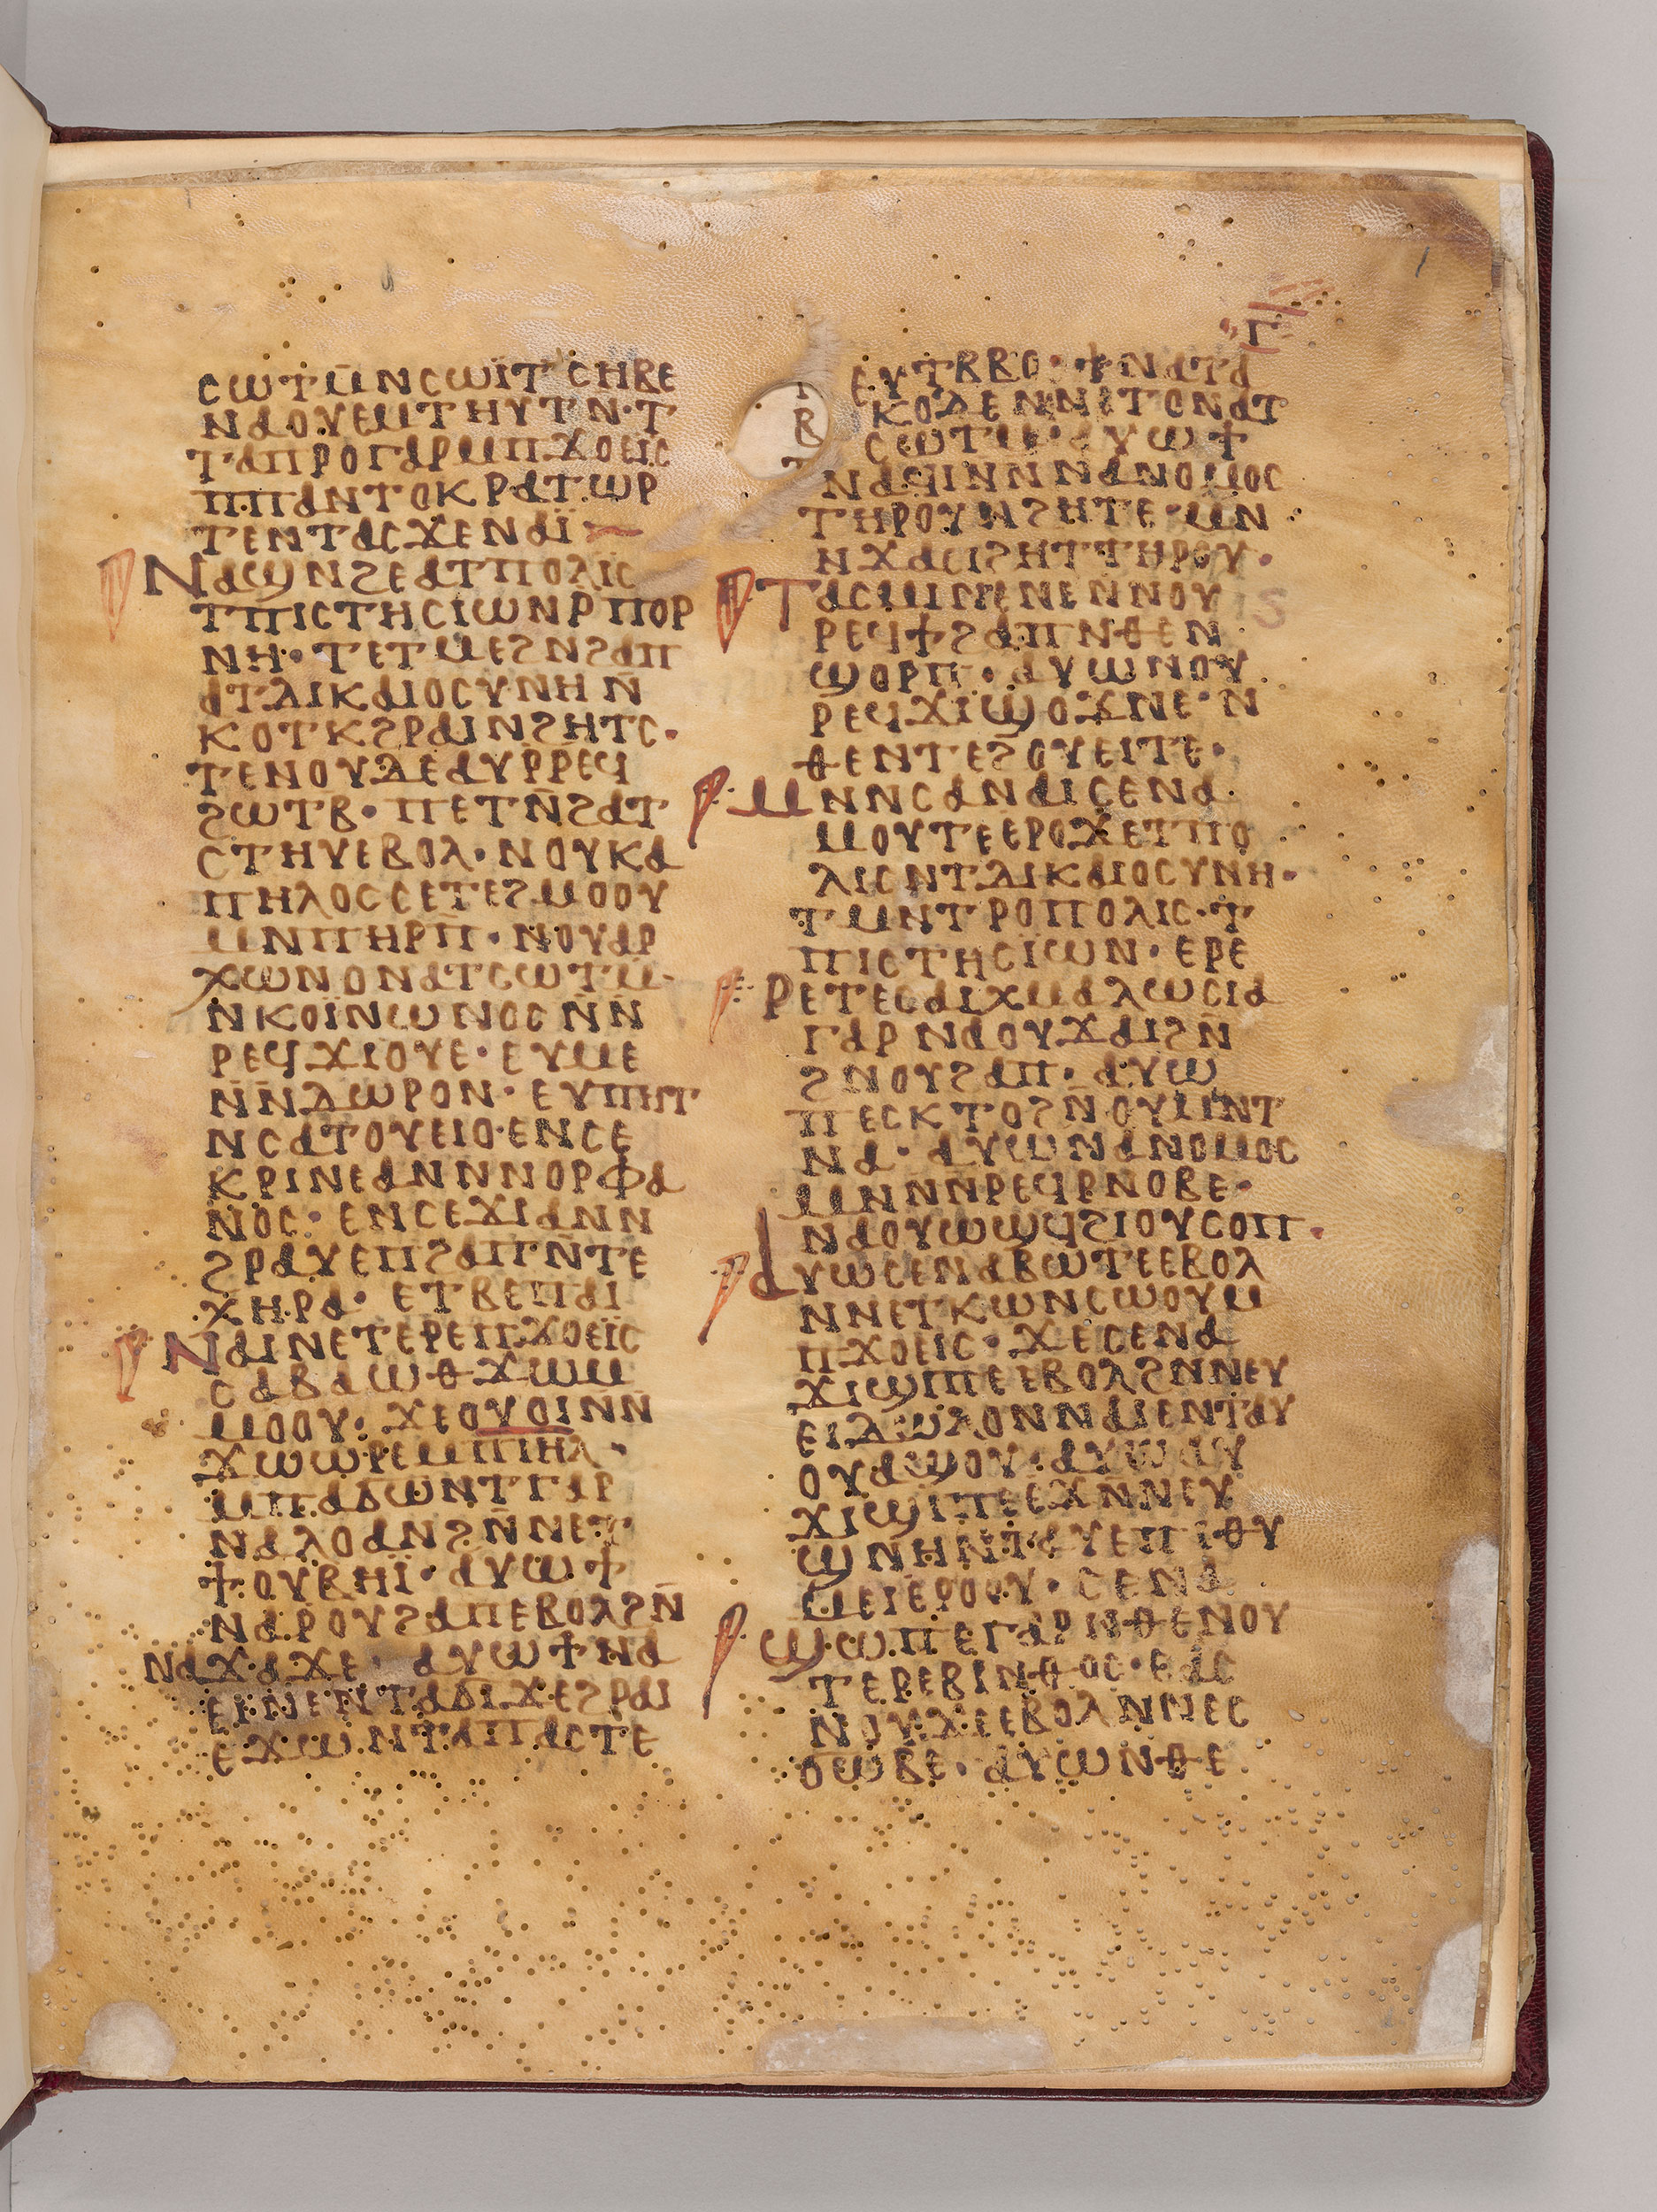 Ⲅ
ⲥⲱⲧⲙ̄ⲛⲥⲱⲓ̈ⲧⲥⲏⲃⲉ
ⲛⲁⲟⲩⲉⲙⲧⲏⲩⲧⲛ·ⲧ
ⲧⲁⲡⲣⲟⲅⲁⲣⲙⲡϫⲟⲉⲓⲥ
ⲡⲡⲁⲛⲧⲟⲕⲣⲁⲧⲱⲣ
ⲧⲉⲛⲧⲁⲥϫⲉⲛⲁⲓ̈
ⲛⲁϣⲛϩⲉⲁⲧⲡⲟⲗⲓⲥ
ⲧⲡⲓⲥⲧⲏⲥⲓⲱⲛⲣⲡⲟⲣ
ⲛⲏ·ⲧⲉⲧⲙⲉϩⲛϩⲁⲡ
ⲁⲧⲇⲓⲕⲁⲓⲟⲥⲩⲛⲏⲛ̄
ⲕⲟⲧⲕϩⲣⲁⲓⲛϩⲏⲧⲥ·
ⲧⲉⲛⲟⲩⲇⲉⲁⲩⲣ̄ⲣⲉϥ
ϩⲱⲧⲃ·ⲡⲉⲧⲛ̄ϩⲁⲧ
ⲥⲧⲏⲩⲉⲃⲟⲗ·ⲛⲟⲩⲕⲁ
ⲡⲏⲗⲟⲥⲥⲉⲧⲉϩⲙⲟⲟⲩ
ⲙⲛⲡⲏⲣⲡ̄·ⲛⲟⲩⲁⲣ
ⲭⲱⲛⲟⲛⲁⲧⲥⲱⲧⲙ̄·
ⲛⲕⲟⲓ̈ⲛⲱⲛⲟⲥⲛ̄ⲛ̄
ⲣⲉϥϫⲓⲟⲩⲉ·ⲉⲩⲙⲉ
ⲛ̄ⲛ̄ⲇⲱⲣⲟⲛ·ⲉⲩⲡⲏⲧ
ⲛⲥⲁⲧⲟⲩⲉⲓⲟ·ⲉⲛⲥⲉ
ⲕⲣⲓⲛⲉⲁⲛⲛⲛⲟⲣⲫⲁ
ⲛⲟⲥ·ⲉⲛⲥⲉϫⲓⲁⲛⲛ
ϩⲣⲁⲩⲉⲡϩⲁⲡⲛ̄ⲧⲉ
ⲭⲏⲣⲁ·ⲉⲧⲃⲉⲡⲁⲓ
ⲛⲁⲓⲛⲉⲧⲉⲣⲉⲡϫⲟⲉⲓ̈ⲥ
ⲥⲁⲃⲁⲱⲑϫⲱⲙ
ⲙⲟⲟⲩ·ϫⲉⲟⲩⲟⲓⲛ̄ⲛ̄
ϫⲱⲱⲣⲉⲙⲡⲓⲏⲗ·
ⲙⲡⲁϭⲱⲛⲧⲅⲁⲣ
ⲛⲁⲗⲟⲁⲛϩⲛ̄ⲛⲉⲧ
ϯⲟⲩⲃⲏⲓ̈·ⲁⲩⲱϯ
ⲛⲁⲣⲟⲩϩⲁⲡⲉⲃⲟⲗϩⲛ̄
ⲛⲁϫⲁϫⲉ·ⲁⲩⲱϯⲛⲁ
ⲉⲓⲛⲉⲛⲧⲁϭⲓϫⲉϩⲣⲁⲓ
ⲉϫⲱⲛⲧⲁⲡⲁⲥⲧⲉ
ⲉⲩⲧⲃⲃⲟ·ϯⲛⲁⲧⲁ
ⲕⲟⲇⲉⲛⲛⲉⲧⲟⲛⲁⲧ
ⲥⲱⲧⲙ·ⲁⲩⲱϯ
ⲛⲁϥⲓⲛⲛⲛⲁⲛⲟⲙⲟⲥ
ⲧⲏⲣⲟⲩⲛϩⲏⲧⲉ·ⲙⲛ
ⲛϫⲁⲥⲓϩⲏⲧⲧⲏⲣⲟⲩ·
ⲧⲁⲥⲙⲓⲛⲉⲛⲉⲛⲛⲟⲩ
ⲣⲉϥϯϩⲁⲡⲛⲑⲉⲛ
ϣⲟⲣⲡ·ⲁⲩⲱⲛⲟⲩ
ⲣⲉϥϫⲓϣⲟϫⲛⲉ·ⲛ
ⲑⲉⲛⲧⲉϩⲟⲩⲉⲓⲧⲉ·
ⲙⲛⲛⲥⲁⲛⲁⲓⲥⲉⲛⲁ
ⲙⲟⲩⲧⲉⲉⲣⲟϫⲉⲧⲡⲟ
ⲗⲓⲥⲛⲧⲇⲓⲕⲁⲓⲟⲥⲩⲛⲏ·
ⲧⲙⲛⲧⲣⲟⲡⲟⲗⲓⲥ·ⲧ
ⲡⲓⲥⲧⲏⲥⲓ̈ⲱⲛ·ⲉⲣⲉ
ⲣⲉⲧⲉⲥⲁⲓⲭⲙⲁⲗⲱⲥⲓⲁ
ⲅⲁⲣⲛⲁⲟⲩϫⲁⲓϩⲛ̄
ϩⲛⲟⲩϩⲁⲡ·ⲁⲩⲱ
ⲡⲉⲥⲕⲧⲟϩⲛ̄ⲟⲩⲙⲛⲧ
ⲛⲁ·ⲁⲩⲱⲛⲁⲛⲟⲙⲟⲥ
ⲙⲛⲛⲛⲣⲉϥⲣⲛⲟⲃⲉ·
ⲛⲁⲟⲩⲱϣϥϩⲓⲟⲩⲥⲟⲡ·
ⲁⲩⲱⲥⲉⲛⲁⲃⲱⲧⲉⲉⲃⲟⲗ
ⲛⲛⲉⲧⲕⲱⲛⲥⲱⲟⲩⲙ
ⲡϫⲟⲉⲓⲥ·ϫⲉⲥⲉⲛⲁ
ϫⲓϣⲓⲡⲉⲉⲃⲟⲗϩⲛⲛⲉⲩ
ⲉⲓⲇⲱⲗⲟⲛⲛⲁⲓⲉⲛⲧⲁⲩ
ⲟⲩⲁϣⲟⲩ·ⲁⲩⲱⲁⲩ
ϫⲓϣⲓⲡⲉⲉϫⲛ̄ⲛⲉⲩ
ϣⲛⲏⲛⲧⲁⲩⲉⲡⲓⲑⲩ
ⲙⲉⲓⲉⲣⲟⲟⲩ·ⲥⲉⲛⲁ
ϣⲱⲡⲉⲅⲁⲣⲛⲑⲉⲛⲟⲩ
ⲧⲉⲣⲉⲃⲓⲛⲑⲟⲥ·ⲉⲁⲥ
ⲛⲟⲩϫⲉⲉⲃⲟⲗⲛⲛⲉⲥ
ϭⲱⲃⲉ·ⲁⲩⲱⲛⲑⲉ